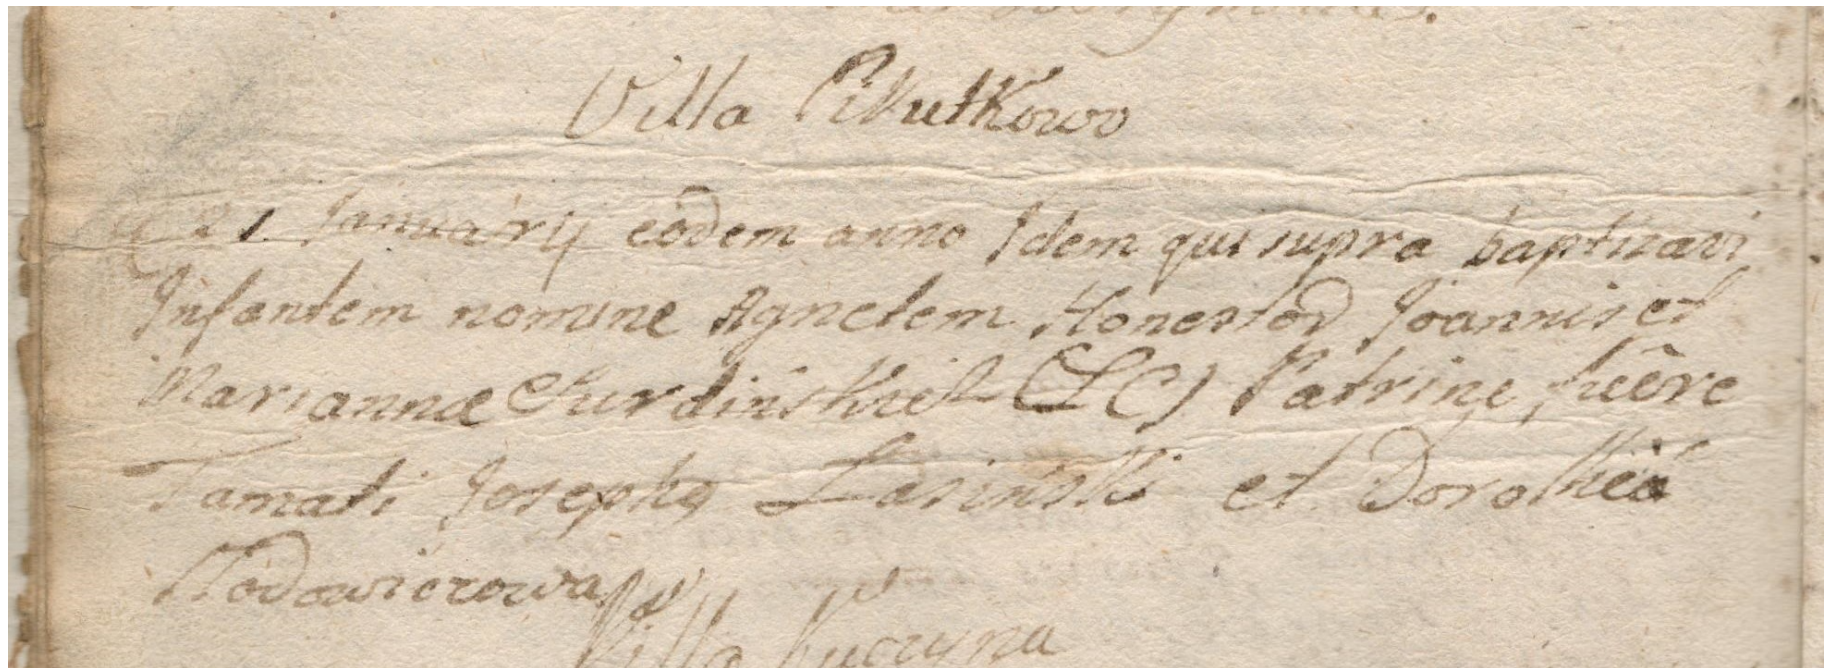 Villa Pikutkowo
21 Januarij eodem anno Idem qui supra baptisavi
Infantem nomine Agnetem Honestor̃ Joannis et
Mariannæ (LC) Patrini fuêre
Famati Josephg Lasinski et Dorothea

Villa Kuczyna